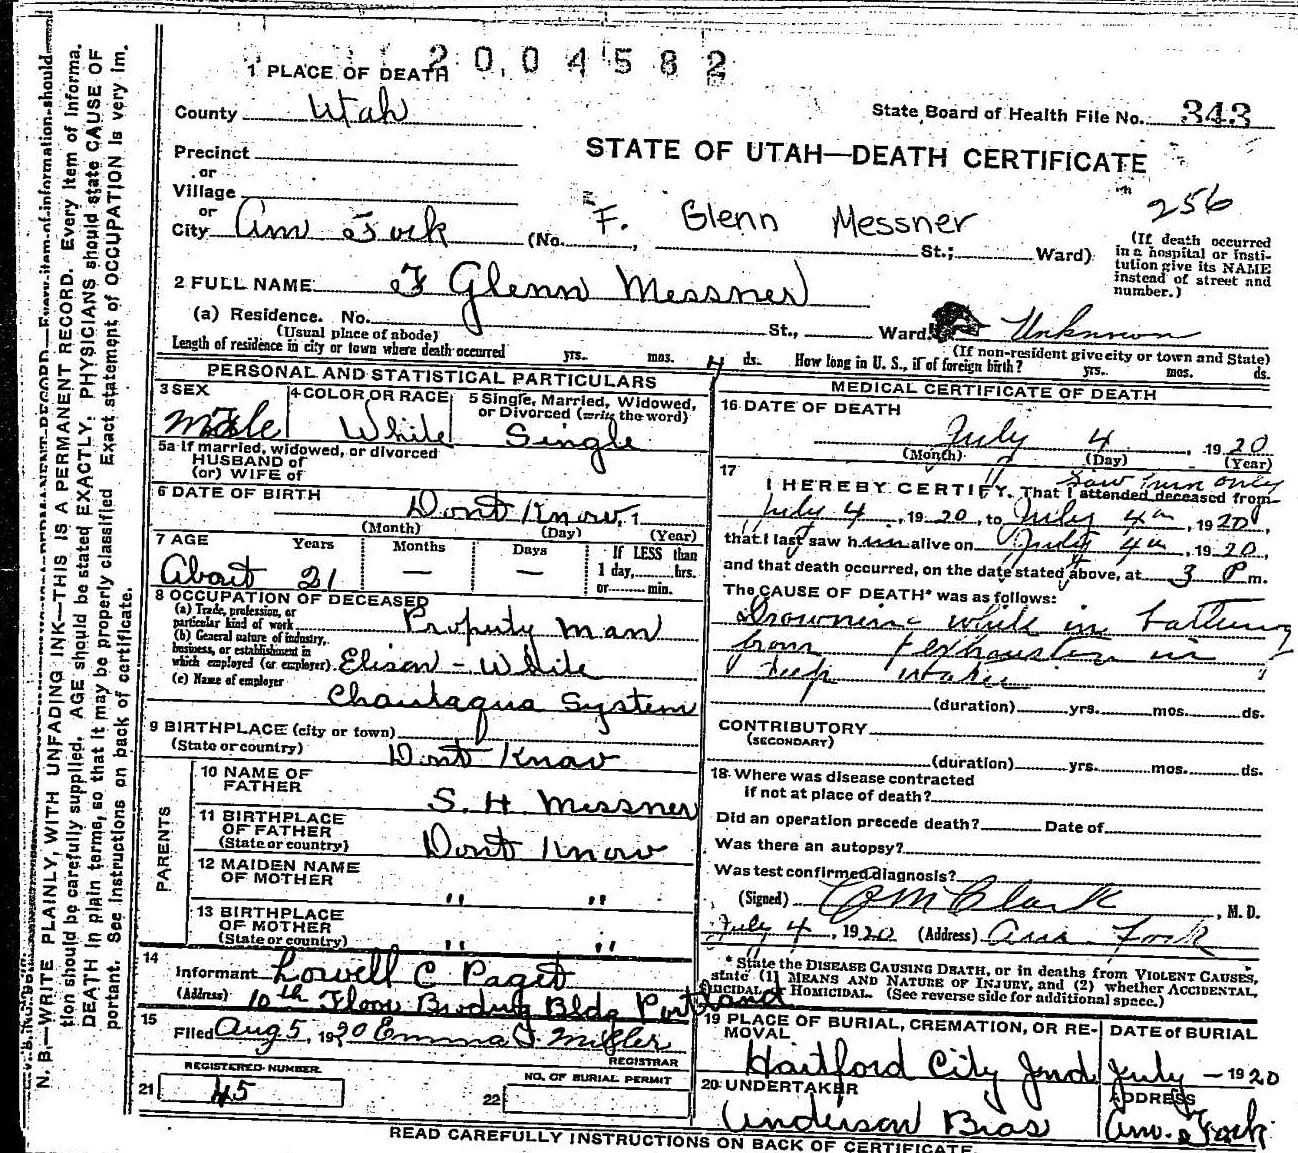 2004582
1 PLACE OF DEATH
County Utah
State Board of Health File No. 343
STATE OF UTAH—DEATH CERTIFICATE
Precinct
or
Village
or
City Am Fork (No. St.; Ward)
F. Glenn Messner
256
(If death occurred in a hospital or institution give its NAME instead of street and number.)
2 FULL NAME F Glenn Messner
(a) Residence. No. St., Ward. Unknown
(Usual place of abode) (If non-resident give city or town and State)
Length of residence in city or town where death occurred yrs. mos. 4 ds. How long in U. S., if of foreign birth? yrs. mos. ds.
PERSONAL AND STATISTICAL PARTICULARS
3 SEX
Male
4 COLOR OR RACE
White
5 Single, Married, Widowed, or Divorced (write the word)
Single
5a If married, widowed, or divorced
HUSBAND of
(or) WIFE of
6 DATE OF BIRTH
Dont Know, 1
(Month) (Day) (Year)
7 AGE Years Months Days If LESS than
1 day, hrs.
or min.
About 21 — —
8 OCCUPATION OF DECEASED
(a) Trade, profession, or
particular kind of work Property man
(b) General nature of industry,
business, or establishment in
which employed (or employer) Elison - White
(c) Name of employer
Chautaqua System
9 BIRTHPLACE (city or town)
(State or country) Dont Know
PARENTS
10 NAME OF
FATHER S. H. Messner
11 BIRTHPLACE
OF FATHER
(State or country) Dont Know
12 MAIDEN NAME
OF MOTHER " "
13 BIRTHPLACE
OF MOTHER
(State or country) " "
14
Informant Lowell C Paget
(Address) 10th Floor Bldg Portland
15
Filed Aug 5, 1920 Emma T. Miller
REGISTRAR
REGISTERED NUMBER
21 45
NO. OF BURIAL PERMIT
22
MEDICAL CERTIFICATE OF DEATH
16 DATE OF DEATH
July 4, 1920
(Month) (Day) (Year)
17
saw him only
I HEREBY CERTIFY, That I attended deceased from
July 4, 1920, to July 4th, 1920,
that I last saw him alive on July 4th, 1920,
and that death occurred, on the date stated above, at 3 P m.
The CAUSE OF DEATH* was as follows:
Drowning while in bathing
from exhaustion in
deep water
(duration) yrs. mos. ds.
CONTRIBUTORY
(SECONDARY)
(duration) yrs. mos. ds.
18 Where was disease contracted
if not at place of death?
Did an operation precede death? Date of
Was there an autopsy?
Was test confirmed diagnosis?
(Signed) Clark, M. D.
July 4, 1920 (Address) Am. Fork
* State the DISEASE CAUSING DEATH, or in deaths from VIOLENT CAUSES,
state (1) MEANS AND NATURE OF INJURY, and (2) whether ACCIDENTAL,
SUICIDAL, HOMICIDAL. (See reverse side for additional space.)
19 PLACE OF BURIAL, CREMATION, OR REMOVAL
Hartford City Ind.
DATE of BURIAL
July — 1920
20 UNDERTAKER
Anderson Bros
ADDRESS
Am. Fork
READ CAREFULLY INSTRUCTIONS ON BACK OF CERTIFICATE.
N. B.—WRITE PLAINLY, WITH UNFADING INK—THIS IS A PERMANENT RECORD. Every item of information should be carefully supplied. AGE should be stated EXACTLY. PHYSICIANS should state CAUSE OF DEATH in plain terms, so that it may be properly classified. Exact statement of OCCUPATION is very important. See instructions on back of certificate.